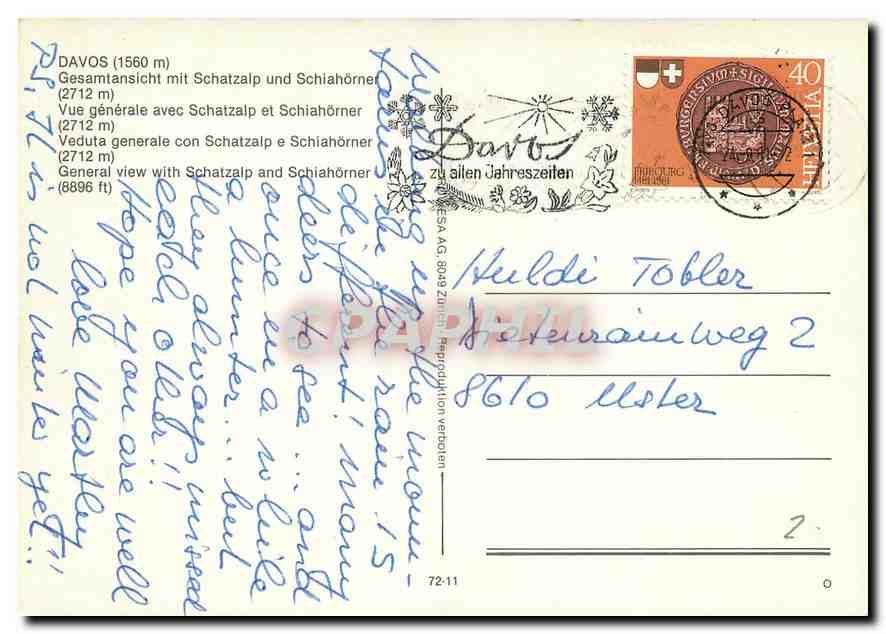 DAVOS (1560 m)
Gesamtansicht mit Schatzalp und Schiahörner
(2712 m)
Vue générale avec Schatzalp et Schiahörner
(2712 m)
Veduta generale con Schatzalp e Schiahörner
(2712 m)
General view with Schatzalp and Schiahörner
(8896 ft)
up in the moun-
tains the rain is
different! Many
deers to see... and
once in a while
a hunter... but
they always missed
each other!!
Hope you are well
love Marthy
P.S. It is not winter yet!!
ESA AG, 8049 Zürich Reproduktion verboten
72-11
Davos
zu allen Jahreszeiten
FRIBOURG
1481-1981
40
HELVETIA
Huldi Tobler
Dietenrainweg 2
8610 Uster
2.
GRAPHIL